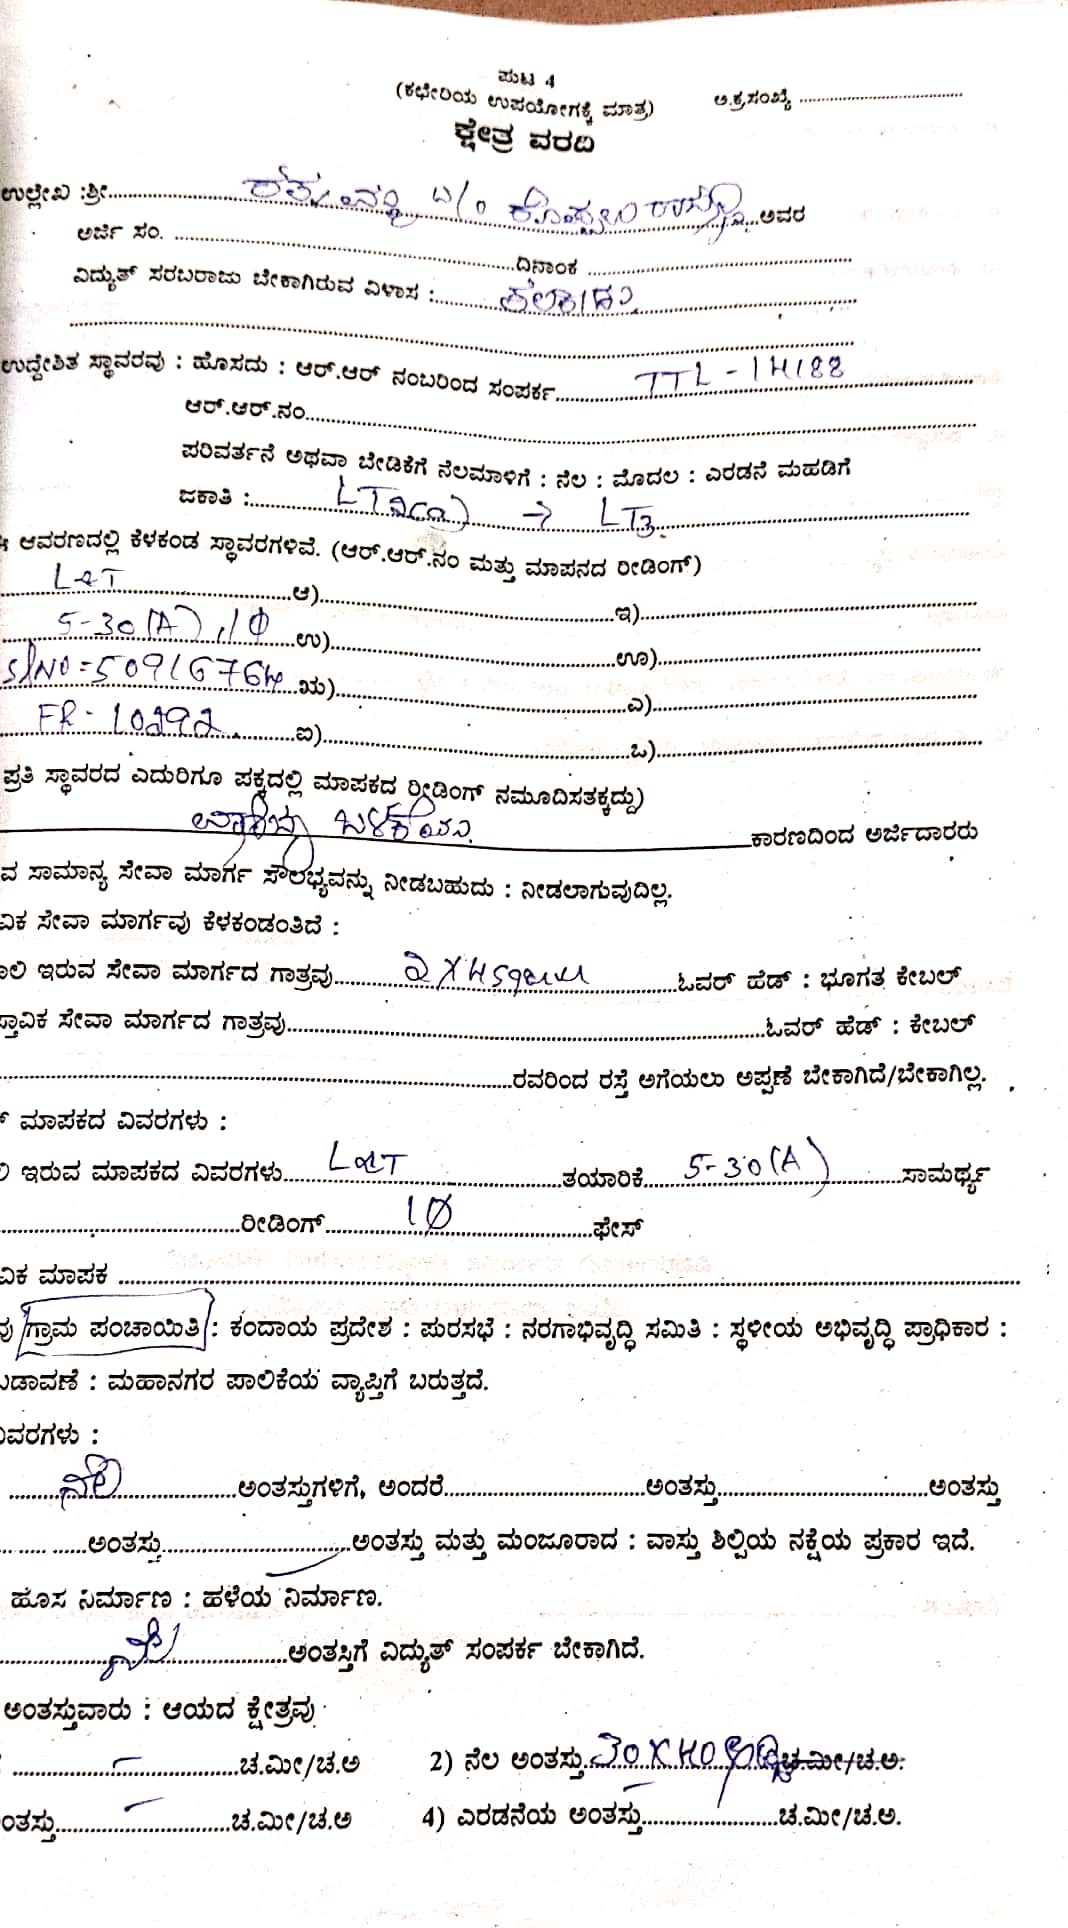 ಪುಟ 4
(ಕಛೇರಿಯ ಉಪಯೋಗಕ್ಕೆ ಮಾತ್ರ) ಅ.ಕ್ರ.ಸಂಖ್ಯೆ ....................
ಕ್ಷೇತ್ರ ವರದಿ
ಉಲ್ಲೇಖ :ಶ್ರೀ.................... ಅವರ
ಅರ್ಜಿ ಸಂ. ....................ದಿನಾಂಕ ....................
ವಿದ್ಯುತ್ ಸರಬರಾಜು ಬೇಕಾಗಿರುವ ವಿಳಾಸ :....................
ಉದ್ದೇಶಿತ ಸ್ಥಾವರವು : ಹೊಸದು : ಆರ್.ಆರ್ ನಂಬರಿಂದ ಸಂಪರ್ಕ.......... TTL - 14188
ಆರ್.ಆರ್.ನಂ....................
ಪರಿವರ್ತನೆ ಅಥವಾ ಬೇಡಿಕೆಗೆ ನೆಲಮಾಳಿಗೆ : ನೆಲ : ಮೊದಲ : ಎರಡನೆ ಮಹಡಿಗೆ
ಜಕಾತಿ :.......... LT2(a) → LT3
ಆವರಣದಲ್ಲಿ ಕೆಳಕಂಡ ಸ್ಥಾವರಗಳಿವೆ. (ಆರ್.ಆರ್.ನಂ ಮತ್ತು ಮಾಪನದ ರೀಡಿಂಗ್)
L&T ..........ಆ)....................ಇ)....................
5-30(A), 1Ø ..........ಉ)....................ಊ)....................
Sl NO = 50916764 ..........ಋ)....................ಎ)....................
FR - 10292 ..........ಐ)....................ಒ)....................
ಪ್ರತಿ ಸ್ಥಾವರದ ಎದುರಿಗೂ ಪಕ್ಕದಲ್ಲಿ ಮಾಪಕದ ರೀಡಿಂಗ್ ನಮೂದಿಸತಕ್ಕದ್ದು)
ವಾಣಿಜ್ಯ ಬಳಕೆಯ ಕಾರಣದಿಂದ ಅರ್ಜಿದಾರರು
ವ ಸಾಮಾನ್ಯ ಸೇವಾ ಮಾರ್ಗ ಸೌಲಭ್ಯವನ್ನು ನೀಡಬಹುದು : ನೀಡಲಾಗುವುದಿಲ್ಲ.
ವಿಕ ಸೇವಾ ಮಾರ್ಗವು ಕೆಳಕಂಡಂತಿದೆ :
ಾಲಿ ಇರುವ ಸೇವಾ ಮಾರ್ಗದ ಗಾತ್ರವು.......... 2 X 4 sqmm ..........ಓವರ್ ಹೆಡ್ : ಭೂಗತ ಕೇಬಲ್
ಸ್ತಾವಿಕ ಸೇವಾ ಮಾರ್ಗದ ಗಾತ್ರವು....................ಓವರ್ ಹೆಡ್ : ಕೇಬಲ್
....................ರವರಿಂದ ರಸ್ತೆ ಅಗೆಯಲು ಅಪ್ಪಣೆ ಬೇಕಾಗಿದೆ/ಬೇಕಾಗಿಲ್ಲ.
ಮಾಪಕದ ವಿವರಗಳು :
ಇರುವ ಮಾಪಕದ ವಿವರಗಳು.......... L&T ..........ತಯಾರಿಕೆ.......... 5-30(A) ..........ಸಾಮರ್ಥ್ಯ
....................ರೀಡಿಂಗ್.......... 1Ø ..........ಫೇಸ್
ವಿಕ ಮಾಪಕ ....................
ವು ಗ್ರಾಮ ಪಂಚಾಯಿತಿ : ಕಂದಾಯ ಪ್ರದೇಶ : ಪುರಸಭೆ : ನರಗಾಭಿವೃದ್ಧಿ ಸಮಿತಿ : ಸ್ಥಳೀಯ ಅಭಿವೃದ್ಧಿ ಪ್ರಾಧಿಕಾರ :
ಬಡಾವಣೆ : ಮಹಾನಗರ ಪಾಲಿಕೆಯ ವ್ಯಾಪ್ತಿಗೆ ಬರುತ್ತದೆ.
ವಿವರಗಳು :
.......... ನೆಲ ..........ಅಂತಸ್ತುಗಳಿಗೆ, ಅಂದರೆ....................ಅಂತಸ್ತು....................ಅಂತಸ್ತು
..........ಅಂತಸ್ತು....................ಅಂತಸ್ತು ಮತ್ತು ಮಂಜೂರಾದ : ವಾಸ್ತು ಶಿಲ್ಪಿಯ ನಕ್ಷೆಯ ಪ್ರಕಾರ ಇದೆ.
ಹೊಸ ನಿರ್ಮಾಣ : ಹಳೆಯ ನಿರ್ಮಾಣ.
.......... ನೆಲ ..........ಅಂತಸ್ತಿಗೆ ವಿದ್ಯುತ್ ಸಂಪರ್ಕ ಬೇಕಾಗಿದೆ.
ಅಂತಸ್ತುವಾರು : ಆಯದ ಕ್ಷೇತ್ರವು
....................ಚ.ಮೀ/ಚ.ಅ 2) ನೆಲ ಅಂತಸ್ತು.......... 30 X 40 ಚ.ಮೀ/ಚ.ಅ.
ಂತಸ್ತು....................ಚ.ಮೀ/ಚ.ಅ 4) ಎರಡನೆಯ ಅಂತಸ್ತು....................ಚ.ಮೀ/ಚ.ಅ.